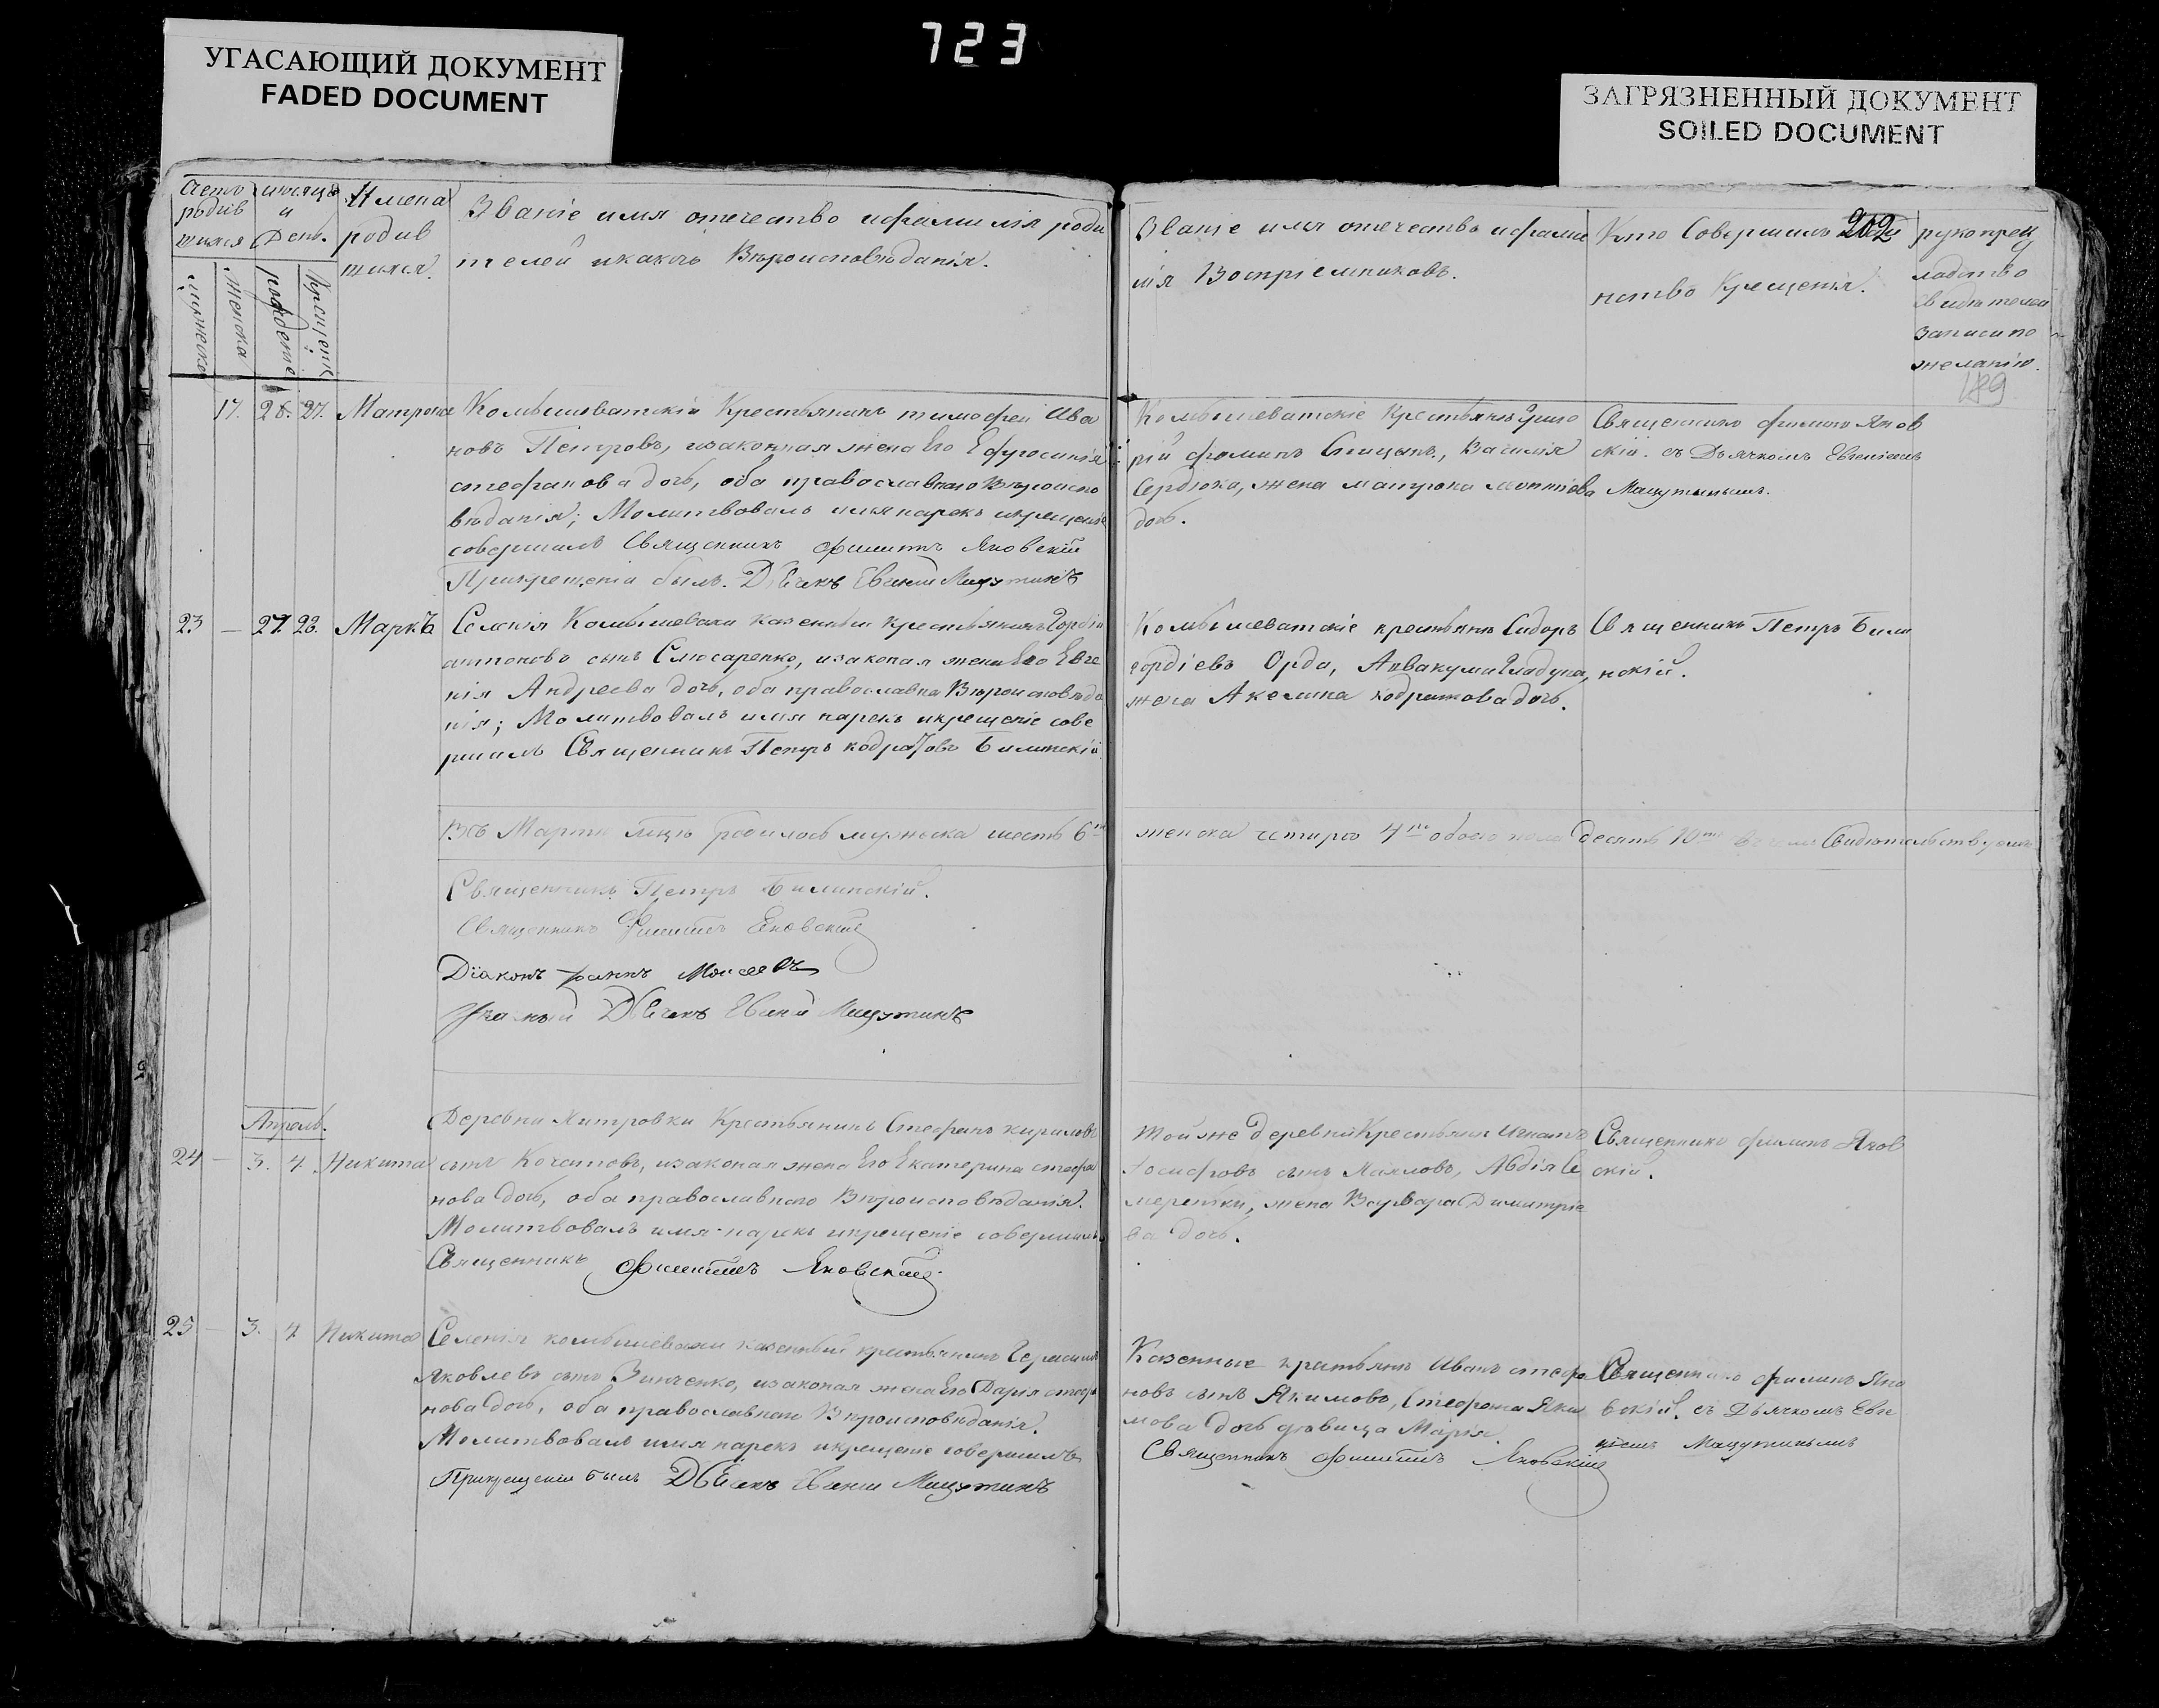 723
УГАСАЮЩИЙ ДОКУМЕНТ
FADED DOCUMENT
ЗАГРЯЗНЕННЫЙ ДОКУМЕНТ
SOILED DOCUMENT
мѣсяцъ
и
День.
Имена
родив
шихся.
Званіе имя отечество ифамилія роди
телей икакогъ Вѣроисповѣданія.
Званіе имя отечество ифами
лія Воспріемниковъ.
Кто Совершилъ
нство Крещенія.
202
рукопри
свидѣтелей
записи по
желанію.
189
17. 26. 27. Матрона
Крестьянинъ тимофей Ива
новъ Петровъ, изаконная жена Его Ефросинія
стефанова дочь, оба православнаго Вѣроиспо
вѣданія; Молитвовалъ имя нарекъ икрещеніе
совершилъ Священникъ Филиппъ Яновскій
Прикрещеніи былъ. Дьячекъ Евгеній Мацутинъ
Комышеватскіе Крестьянъ Григо
рій фоминъ Спицынъ, Василія
Сердюка, жена матрона леонтіева
дочь.
Священникъ филиппъ Янов
скій. съ Дьячкомъ Евгеніемъ
Мацутинымъ.
23 — 27. 28. Маркъ
Селенія Комышевахи казенный крестьянинъ Гордій
антоновъ сынъ Слюсаренко, изаконая жена Его Евге
нія Андреева дочь, оба православна Вѣроисповѣда
нія; Молитвовалъ имя нарекъ икрещеніе сове
ршилъ Священникъ Петръ кодратовъ Билинскій.
Комышеватскіе крестьянъ Сидоръ
гордіевъ Орда, Аввакума Гладуна,
жена Акелина кодратова дочь.
Священникъ Петръ Били
нскій.
Въ Мартѣ мцѣ родилось мужеска шесть 6
женска четыре 4 обоего пола десять 10 Свидѣтельствуемъ
Священникъ Петръ Билинскій.
Священникъ Филиппъ Яновскій
Діаконъ Моисеевъ
Указный Дьячекъ Евгеній Мацутинъ
Апрель.
24 — 3. 4 Никита
Деревни Хитровки Крестьянинъ Стефанъ кириловъ
сынъ Кочетовъ, изаконая жена Его Екатерина стефа
нова дочь, оба православнаго Вѣроисповѣданія.
Молитвовалъ имя нарекъ икрещеніе совершилъ
Священникъ Филиппъ Яновскій.
Той же деревни Крестьянинъ Игнатъ
Іосифовъ сынъ
жена Варвара Димитріе
ва дочь.
Священникъ филипъ Янов
скій.
25 — 3. 4 Никита
Селенія комышевахи казенный крестьянинъ Герасимъ
Яковлевъ сынъ Зинченко, изаконая жена Его Дарія стефа
нова дочь, оба православнаго Вѣроисповѣданія.
Молитвовалъ имя нарекъ икрещеніе совершилъ
Прикрещеніи былъ Дьячекъ Евгеній Мацутинъ
Казенные крестьянъ Иванъ стефа
новъ сынъ Якимовъ, Стефана Яки
мова дочь дѣвица Марія.
Священникъ Филиппъ Яновскій
Священникъ филипъ Яно
вскій. съ Дьячкомъ Евге
ніемъ Мацутинымъ